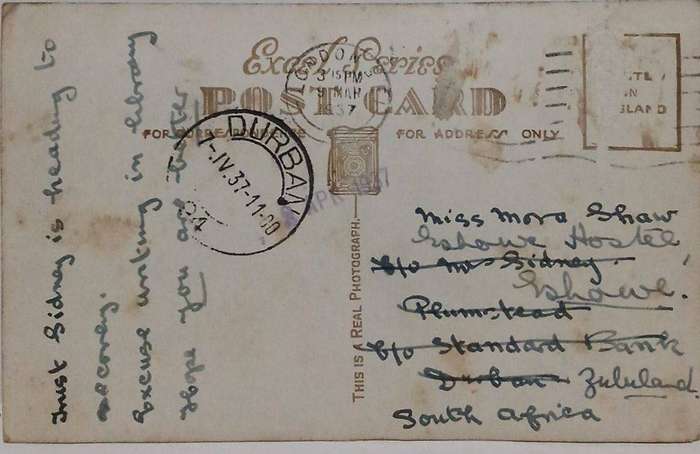 Excel Series
POST CARD
FOR CORRESPONDENCE
FOR ADDRESS ONLY
LONDON
3 15 PM
MAR
37
DURBAN
IV.37-11-00
APR 1937
THIS IS A REAL PHOTOGRAPH.
IN
Trust Sidney is heading to
recovery.
Excuse writing in library
Hope you are better
Miss Mora Shaw
Eshowe Hostel
c/o Mr Sidney
Eshowe
Plumstead
c/o Standard Bank
Durban Zululand
South Africa